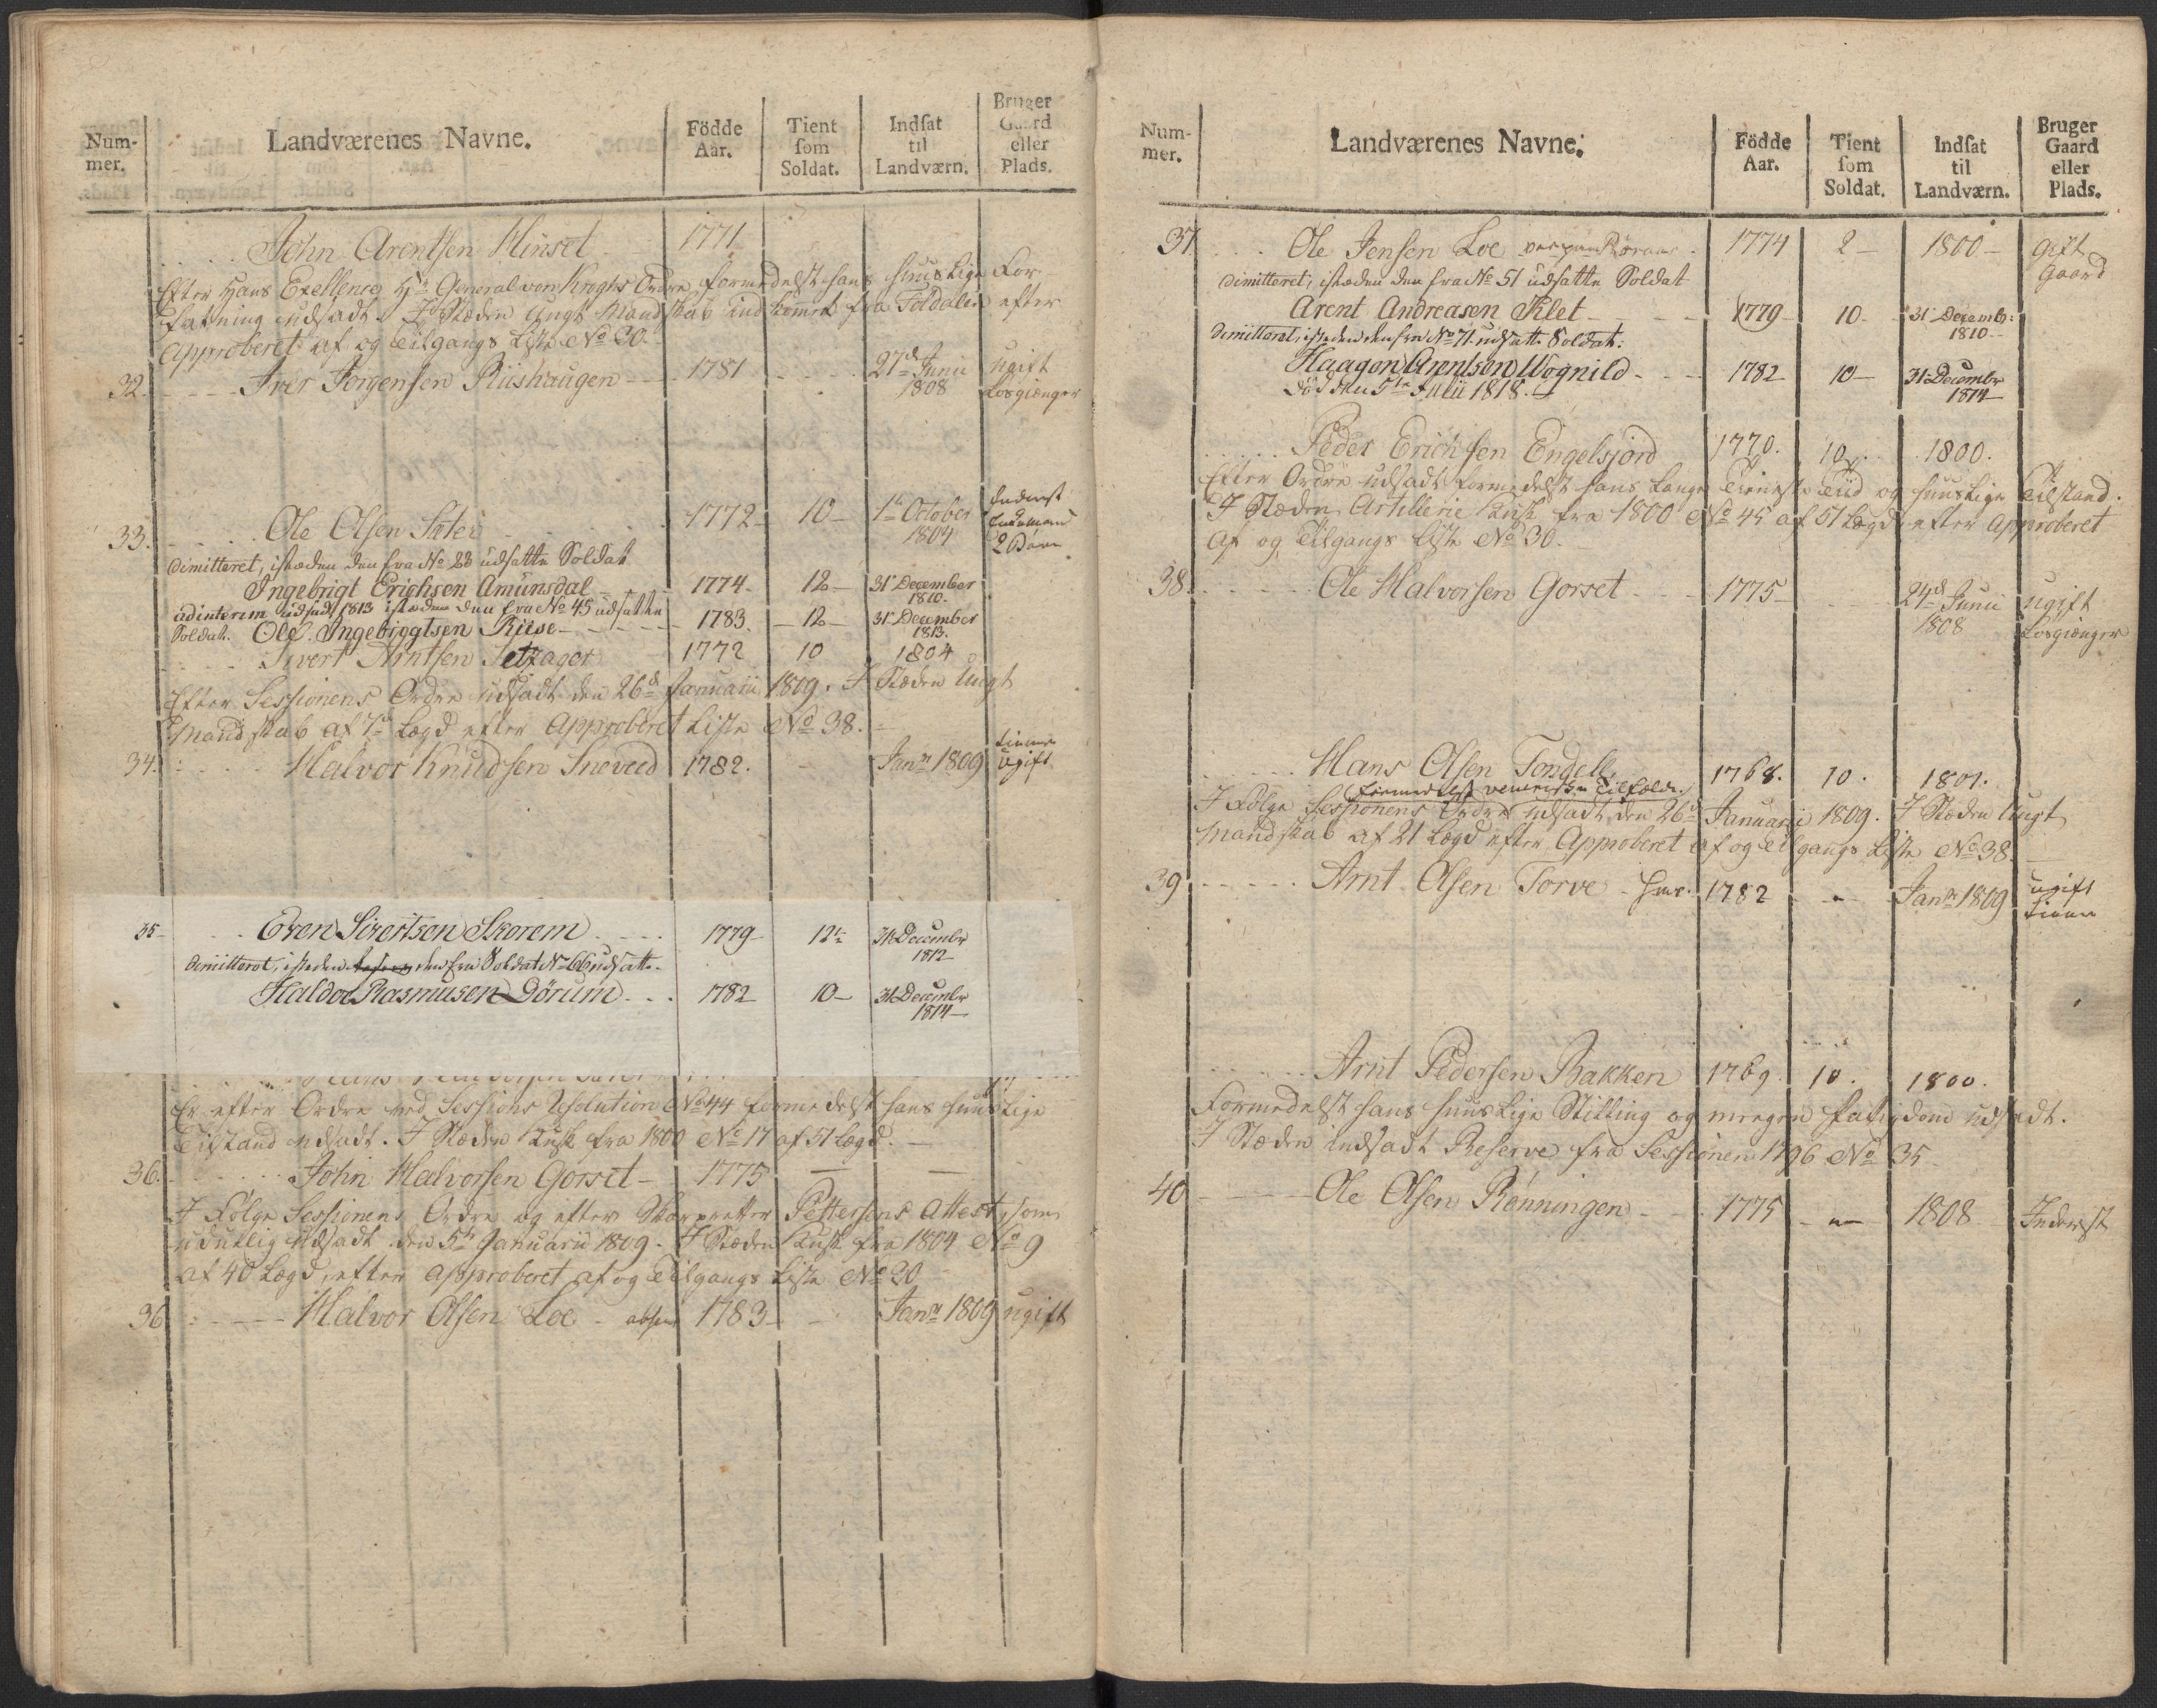 Num-
mer.
Landværenes Navne.
Födde
Aar.
Tient
som
Soldat.
Indsat
til
Landværn.
Bruger
Gaard
eller
Plads.
John Arentsen Hinset 1771
Efter Hans Exellence Hr General von Kroghs Ordre formedelst hans huuslige For-
fatning udsadt. I Stæden ungt Mandskab indkommet fra Toldalen efter
Approberet af og Tilgangs Liste No 30.
32. Iver Jorgensen Riishaugen 1781 27d Junii 1808 ugift Losgiænger
33. Ole Olsen Sæter 1772 10 1te October 1804 Inderst 2 Børn
Dimitteret, istæden den fra No 28 udsatte Soldat
Ingebrigt Erichsen Amunsdal 1774 12 31 December 1810.
ad interim udsadt 1813 istæden den fra No 45 udsatte
Soldat. Ole Ingebrigtsen Riise 1783. 12 31 December 1813.
Sivert Arntsen Setzager 1772 10 1804
Efter Sessionens Ordre udsadt den 26d Januarii 1809. I Stæden ungt
Mandskab af 7d Lægd efter Approberet Liste No 38.
34. Halvor Knudsen Sneveed 1782. Janr 1809 tiener ugift
35 Even Sivertsen Skorem 1779 12 31 Decembr 1812
Dimitteret, isteden den fra Soldat No 66 udsatte.
Haldor Rasmusen Dörum 1782 10 31 Decembr 1814
Er efter Ordre ved Sessions Resolution No 44 formedelst hans huuslige
Tilstand udsadt. I Stæden Kusk fra 1800 No 17 af 51 Lægd.
36. John Halvorsen Gorset 1775
I Følge Sessionens Ordre og efter Pettersens Attest, som
udyglig udsadt den 5te Januarii 1809. I Stæden Kusk fra 1804 No 9
af 40 Lægd, efter Approberet af og Tilgangs Liste No 20
36 Halvor Olsen Loe 1783 Janr 1809 ugift
Num-
mer.
Landværenes Navne.
Födde
Aar.
Tient
som
Soldat.
Indsat
til
Landværn.
Bruger
Gaard
eller
Plads.
37 Ole Jensen Loe 1774 2 1800 gift Gaard
Dimitteret, istæden den fra No 51 udsatte Soldat
Arent Andreasen Klet 1779 10 31 Decemb: 1810
Dimitteret, isteden den fra No 71 udsatte Soldat.
Haagen Arentsen Wognild 1782 10 31 Decembr 1814
Död den 5te Julii 1818.
Peder Erichsen Engelsjord 1770. 10 1800.
Efter Ordre udsadt formedelst hans lange Tieneste Tiid og huuslige Tilstand.
I Stæden Artillerie Kusk fra 1800 No 45 af 51 Lægd efter Approberet
Af og Tilgangs Liste No 30.
38. Ole Halvorsen Gorset 1775 24d Junii 1808 ugift Losgiænger
Hans Olsen Tondell 1768. 10. 1801.
formedelst veneriske Tilfælde
I Følge Sessionens Ordre udsadt den 26d Januarii 1809. I Stæden ungt
Mandskab af 21 Lægd efter Approberet af og Tilgangs Liste No 38.
39 Arnt Olsen Torve 1782 Janr 1809 ugift tiener
Arnt Pedersen Bakken 1769. 10. 1800.
Formedelst hans huuslige Stilling og megen Fattigdom udsadt.
I Stæden indsadt Reserve fra Sessionen 1796 No 35
40 Ole Olsen Rønningen 1775 1808 Inderst